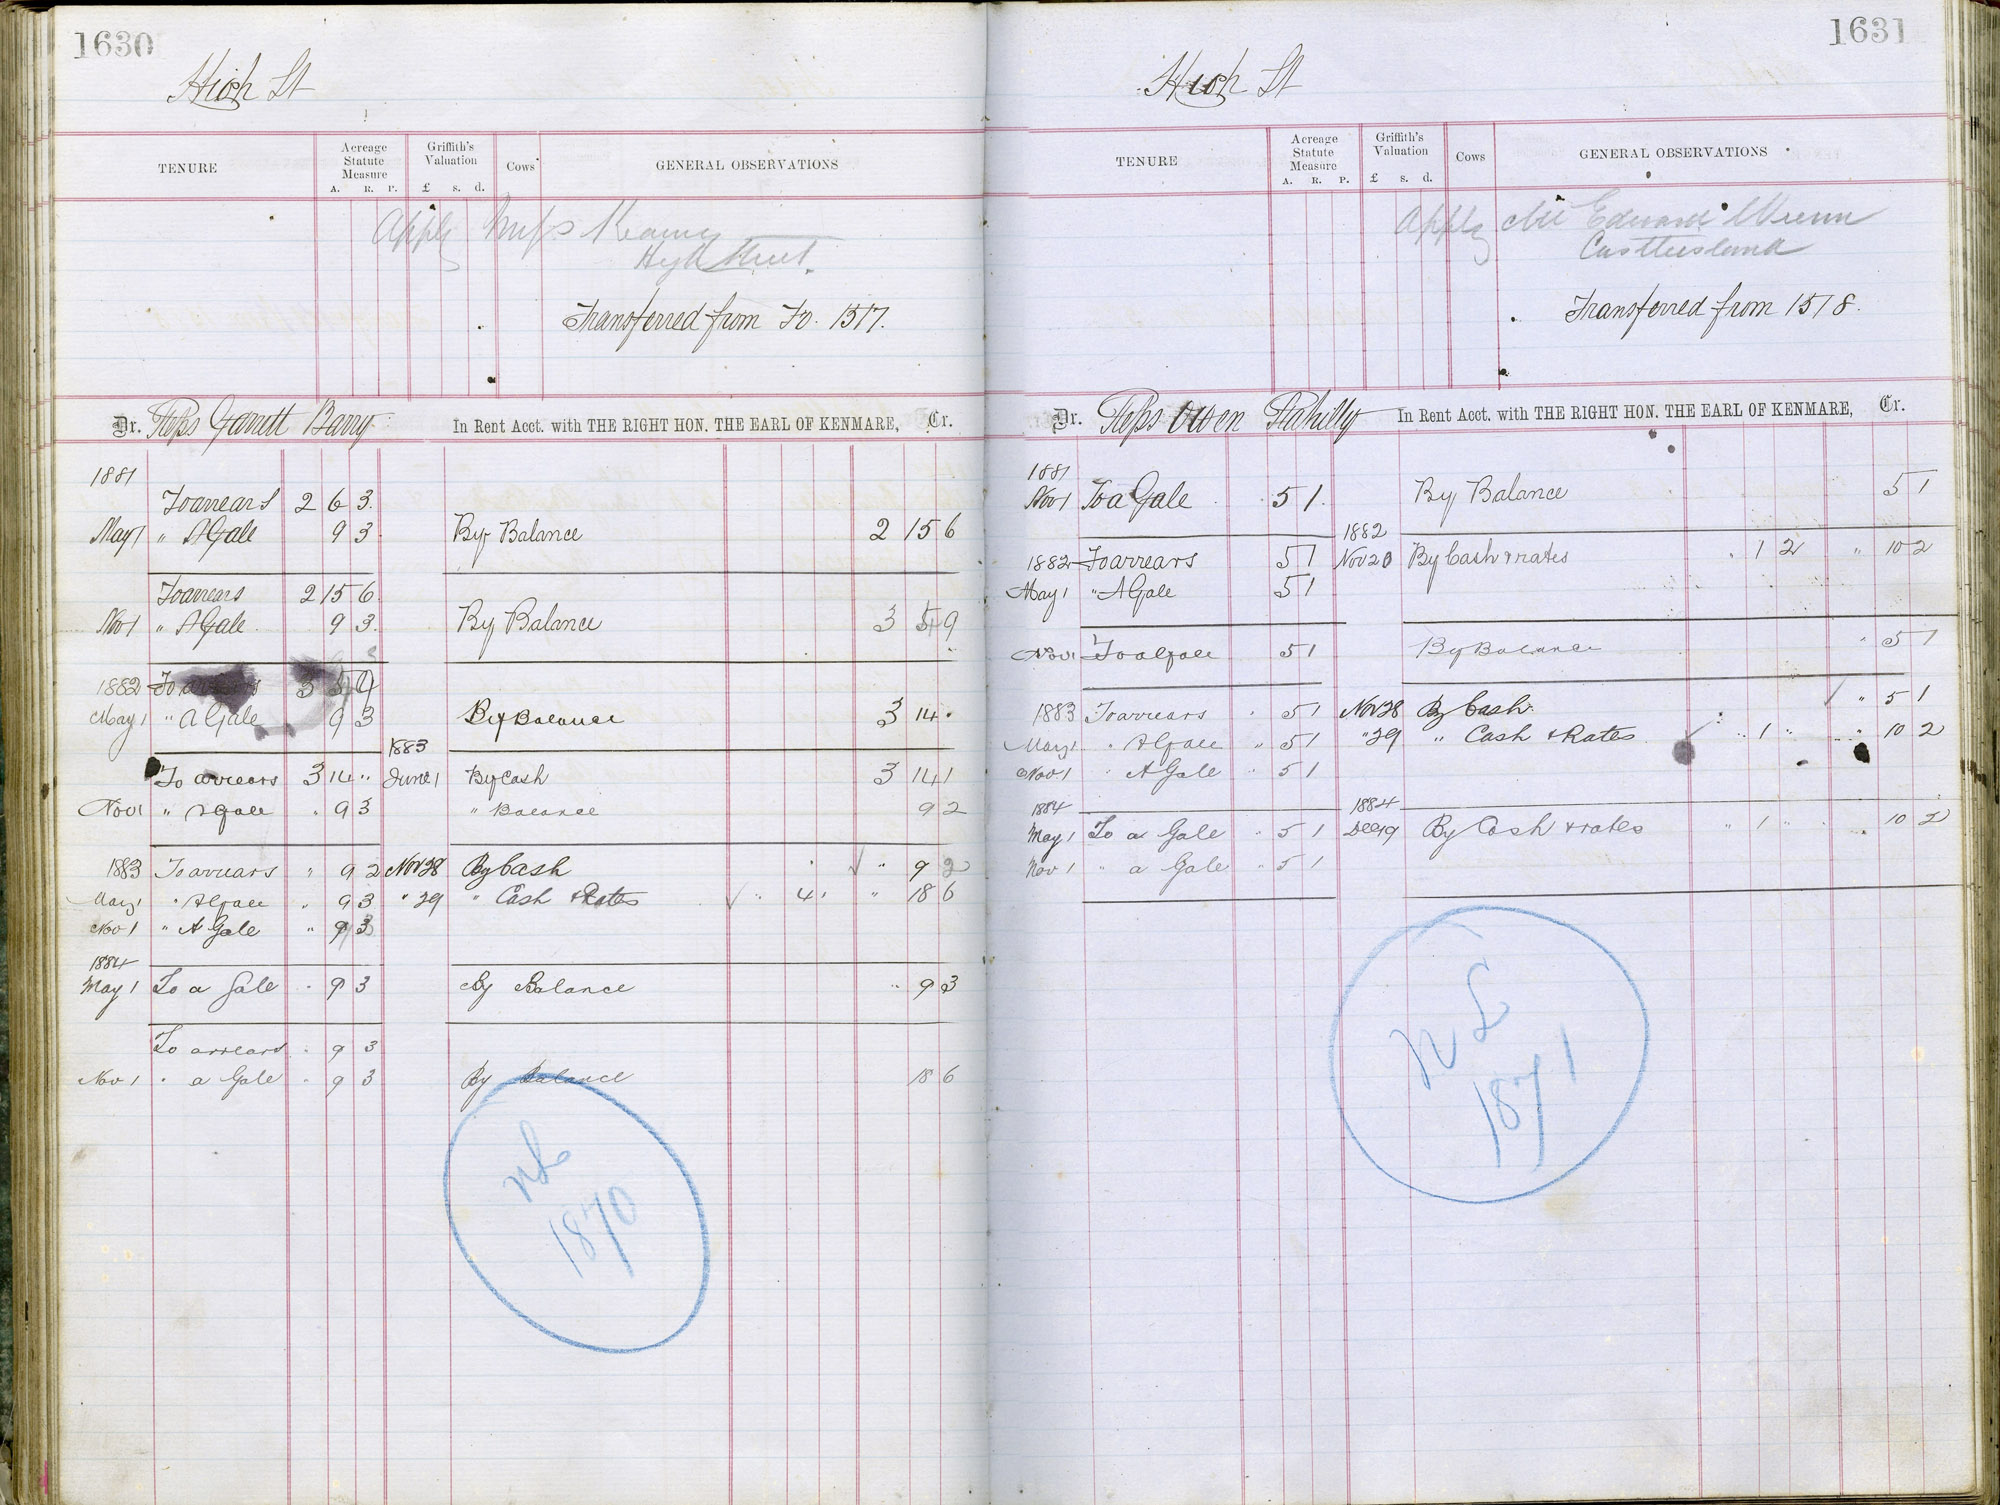 1630
High St
TENURE
Acreage Statute Measure
A. R. P.
Griffith's Valuation
£ s. d.
Cows
GENERAL OBSERVATIONS
Apply Miss
High Street.
Transferred from Fo. 1517.
Dr. Reps Garrett Barry In Rent Acct. with THE RIGHT HON. THE EARL OF KENMARE, Cr.
1881
To arrears 2 6 3
May 1 " A Gale 9 3 By Balance 2 15 6
To arrears 2 15 6
Nov 1 " A Gale 9 3 By Balance 3 4 9
1882 To arrears 3 4 9
May 1 " A Gale 9 3 By Balance 3 14 "
1883
To arrears 3 14 " June 1 By Cash 3 14 1
Nov 1 " A Gale " 9 3 " Balance 9 2
1883 To arrears " 9 2 Nov 28 By Cash " 9 2
May 1 " A Gale " 9 3 " 29 " Cash & Rates " 4 " " 18 6
Nov 1 " A Gale " 9 3
1884
May 1 To a Gale " 9 3 By Balance " 9 3
To arrears " 9 3
Nov 1 " a Gale " 9 3 By Balance 18 6
NL
1870
1631
High St
TENURE
Acreage Statute Measure
A. R. P.
Griffith's Valuation
£ s. d.
Cows
GENERAL OBSERVATIONS
Apply Mr Edward
Castleisland
Transferred from 1518.
Dr. Reps Owen Rahilly In Rent Acct. with THE RIGHT HON. THE EARL OF KENMARE, Cr.
1881
Nov 1 To a Gale 5 1 By Balance 5 1
1882
1882 To arrears 5 1 Nov 20 By Cash & rates " 1 2 " 10 2
May 1 " A Gale 5 1
Nov 1 To a Gale 5 1 By Balance " 5 1
1883 To arrears " 5 1 Nov 28 By Cash " 5 1
May 1 " A Gale " 5 1 " 29 " Cash & Rates " 1 " " 10 2
Nov 1 " A Gale " 5 1
1884 1884
May 1 To a Gale " 5 1 Dec 19 By Cash & rates " 1 " " 10 2
Nov 1 " a Gale " 5 1
NL
1871